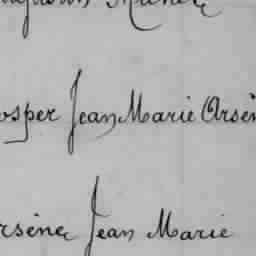 osper Jean Marie Arsèn
rsène Jean Marie